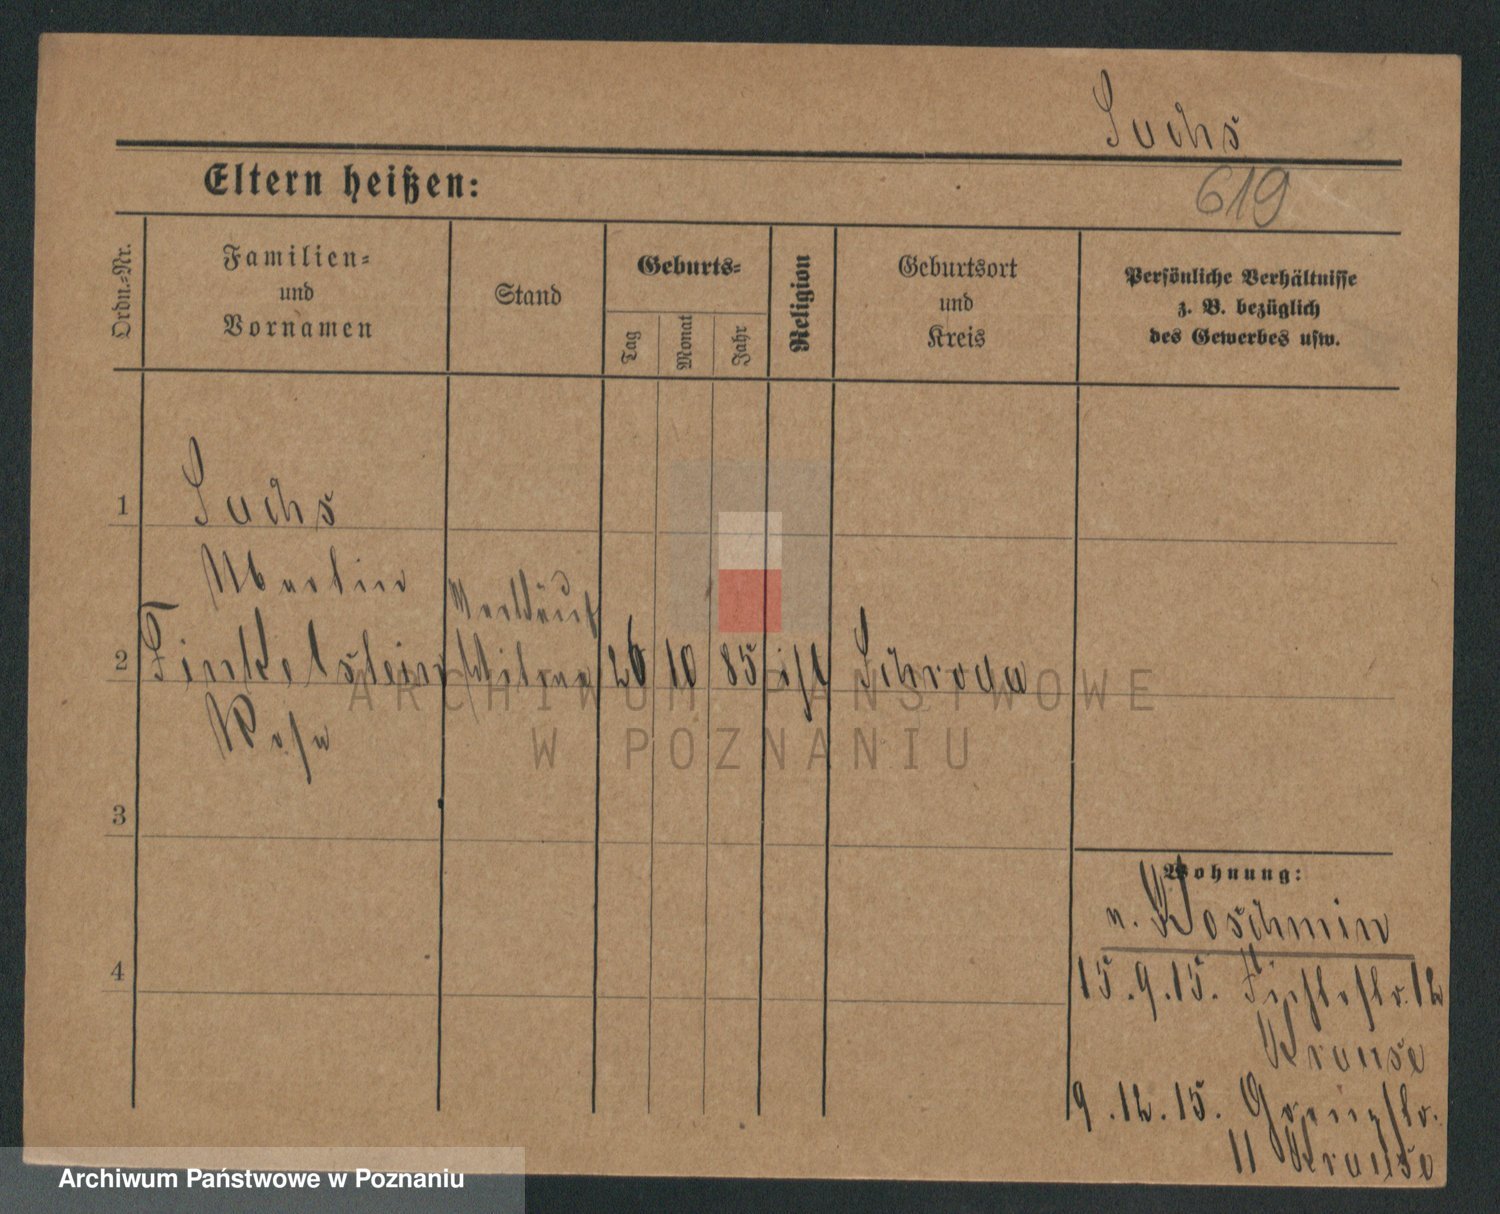 Suchs
Eltern heißen:
619
Ordn.-Nr.
Familien-
und
Vornamen
Stand
Geburts-
Tag
Monat
Jahr
Religion
Geburtsort
und
Kreis
Persönliche Verhältnisse
z. B. bezüglich
des Gewerbes usw.
1
Suchs
Martin
2
Finkelstein
26 10 85 isr Schroda
Rosa
3
4
ARCHIWUM PAŃSTWOWE
W POZNANIU
Wohnung:
n. Koschmin
15.9.15. Fichtestr. 12
Krause
9.12.15.
11 Krause
Archiwum Państwowe w Poznaniu